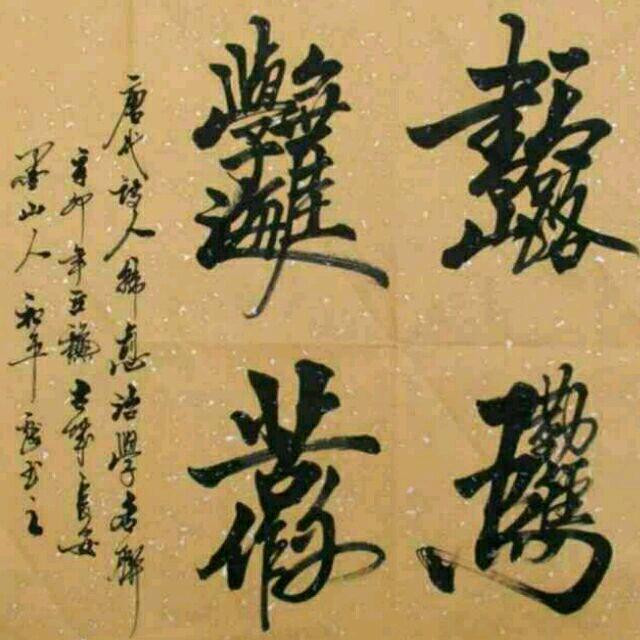 書山有路
勤為徑
學海無涯
苦作舟
唐代詩人韓愈治學名聯
辛卯年 長安
山人和平